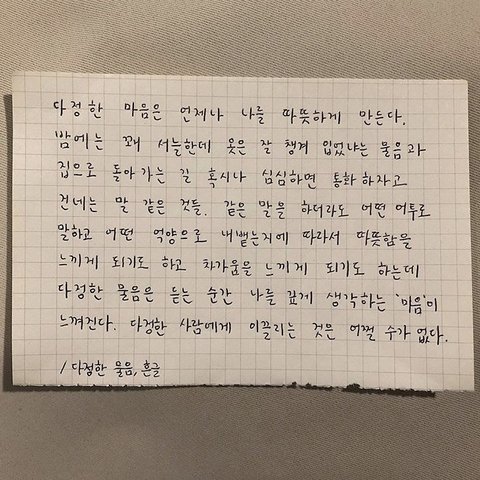 다정한 마음은 언제나 나를 따뜻하게 만든다.
밤에는 꽤 서늘한데 옷은 잘 챙겨 입었냐는 물음과
집으로 돌아 가는 길 혹시나 심심하면 통화 하자고
건네는 말 같은 것들. 같은 말을 하더라도 어떤 어투로
말하고 어떤 억양으로 내뱉는지에 따라서 따뜻함을
느끼게 되기도 하고 차가움을 느끼게 되기도 하는데
다정한 물음은 듣는 순간 나를 깊게 생각하는 '마음'이
느껴진다. 다정한 사람에게 이끌리는 것은 어쩔 수가 없다.
/ 다정한 물음, 흔글